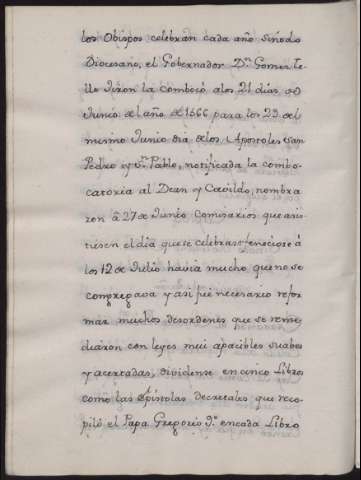 los Obispos celebran cada año Sínodo
Diocesano, el Gobernador D.n Gomez te
llo Jiron la Combocó alos 21 dias de
Junio de laño de 1566 para los 29 del
mismo Junio dia delos Apostoles San
Pedro y Sn Pablo, notificada la combo-
catoria al Dean y Cavildo, nombra
ron á 27 de Junio Comisarios que asis
tiesen el dia que se celebrase feneciose á
los 12 de Julio havia mucho que no se
congregava y asi fue necesario refor
mar muchos desordenes que se reme
diaron con leyes mui apacibles suabes
y acertadas, dividense en cinco Libros
como las Epístolas decretales que reco
piló el Papa Gregorio 9.º encada Libro